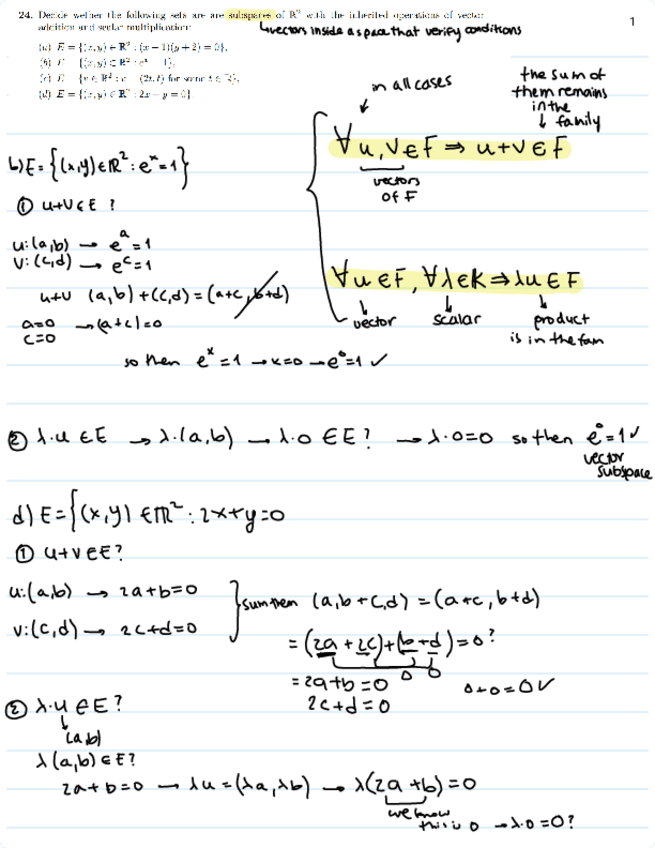 24. Decide wether the following sets are are subspares of R² with the inherited operations of vector
addition and scalar multiplication:
↳vectors inside a space that verify conditions
1
(a) E = {(x, y) ∈ R² : (x − 1)(y + 2) = 0},
(b) E = {(x, y) ⊂ R² : eˣ = 1},
(c) E = {v ∈ R² : v = (2t, t) for some t ∈ R},
(d) E = {(x, y) ∈ R² : 2x − y = 0}
in all cases
the sum of
them remains
in the
↓ family
∀ u,v ∈ F ⇒ u+v ∈ F
vectors
of F
∀ u ∈ F, ∀ λ ∈ K ⇒ λu ∈ F
vector
scalar
product
is in the fam
b) E = {(x,y) ∈ R² : eˣ = 1}
① u+v ∈ E ?
u: (a,b) → eᵃ = 1
v: (c,d) → eᶜ = 1
u+v (a,b)+(c,d) = (a+c, b+d)
a=0 → (a+c)=0
c=0
so then eˣ=1 → x=0 → e⁰=1 ✓
② λ·u ∈ E → λ·(a,b) → λ·0 ∈ E? → λ·0=0 so then e⁰=1 ✓
vector
subspace
d) E = {(x,y) ∈ R² : 2x+y=0
① u+v ∈ E?
u: (a,b) → 2a+b=0
v: (c,d) → 2c+d=0
sum then (a,b + c,d) = (a+c, b+d)
= (2a + 2c)+(b+d)=0?
= 2a+b=0 0 0 0+0=0 ✓
2c+d=0
② λ·u ∈ E?
(a,b)
λ(a,b) ∈ E?
2a+b=0 → λu = (λa, λb) → λ(2a+b)=0
we know
this is 0 → λ·0=0?